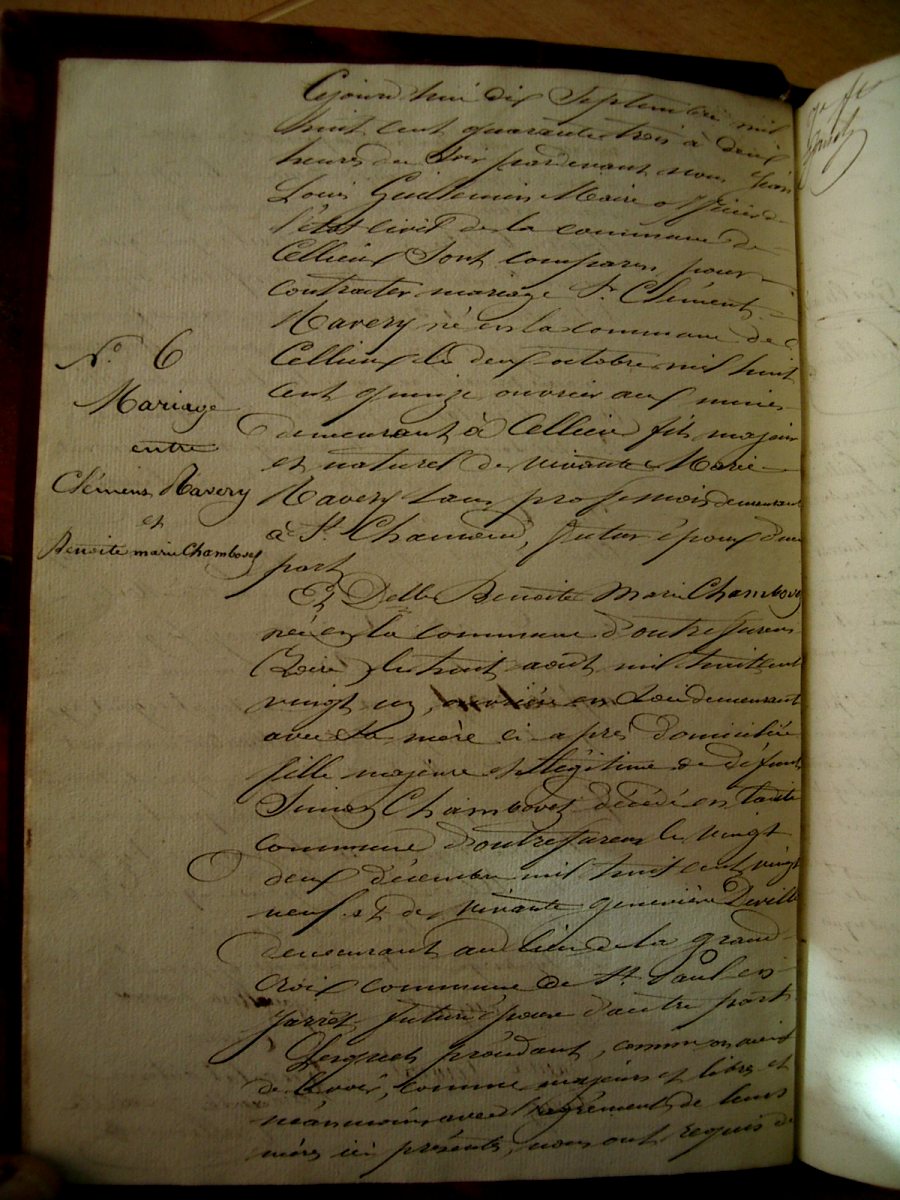 N.° 6
Mariage
entre
Clémens Ravery
et
Benoite marie Chambovet
Cejourd'hui dix Septembre mil
huit cent quarante trois à deux
heures du Soir pardevant nous Jean
Louis Guillemin Maire officier de
l'état civil de la commune de
Cellieux Sont comparus pour
contracter mariage Sr. Clément
Ravery né en la commune de
Cellieux le deux octobre mil huit
cent quinze ouvrier aux mines
demeurant à Cellieu fils majeur
et naturel de vivante Marie
Ravery sans profession demeurant
à St. Chamond, futur époux d'une
part
Et Delle Benoite Marie Chambovet
née en la commune d'outrefurens
(Loire) le huit août mil huit cent
vingt un, ouvrière en Soie demeurant
avec Sa mère ci après domiciliée
fille majeure et légitime de défunt
Simon Chambovet décédé en ladite
commune d'outrefurens le vingt
deux décembre mil huit cent vingt
neuf et de vivante geneviève Deville
demeurant au lieu de la grand
Croix commune de St. Paul en
Jarret future épouse d'autre part
Lesquels procédant, comme
de droit, comme majeurs et libres et
néanmoins avec l'agrément de leurs
mères ici présentes, nous ont requis de